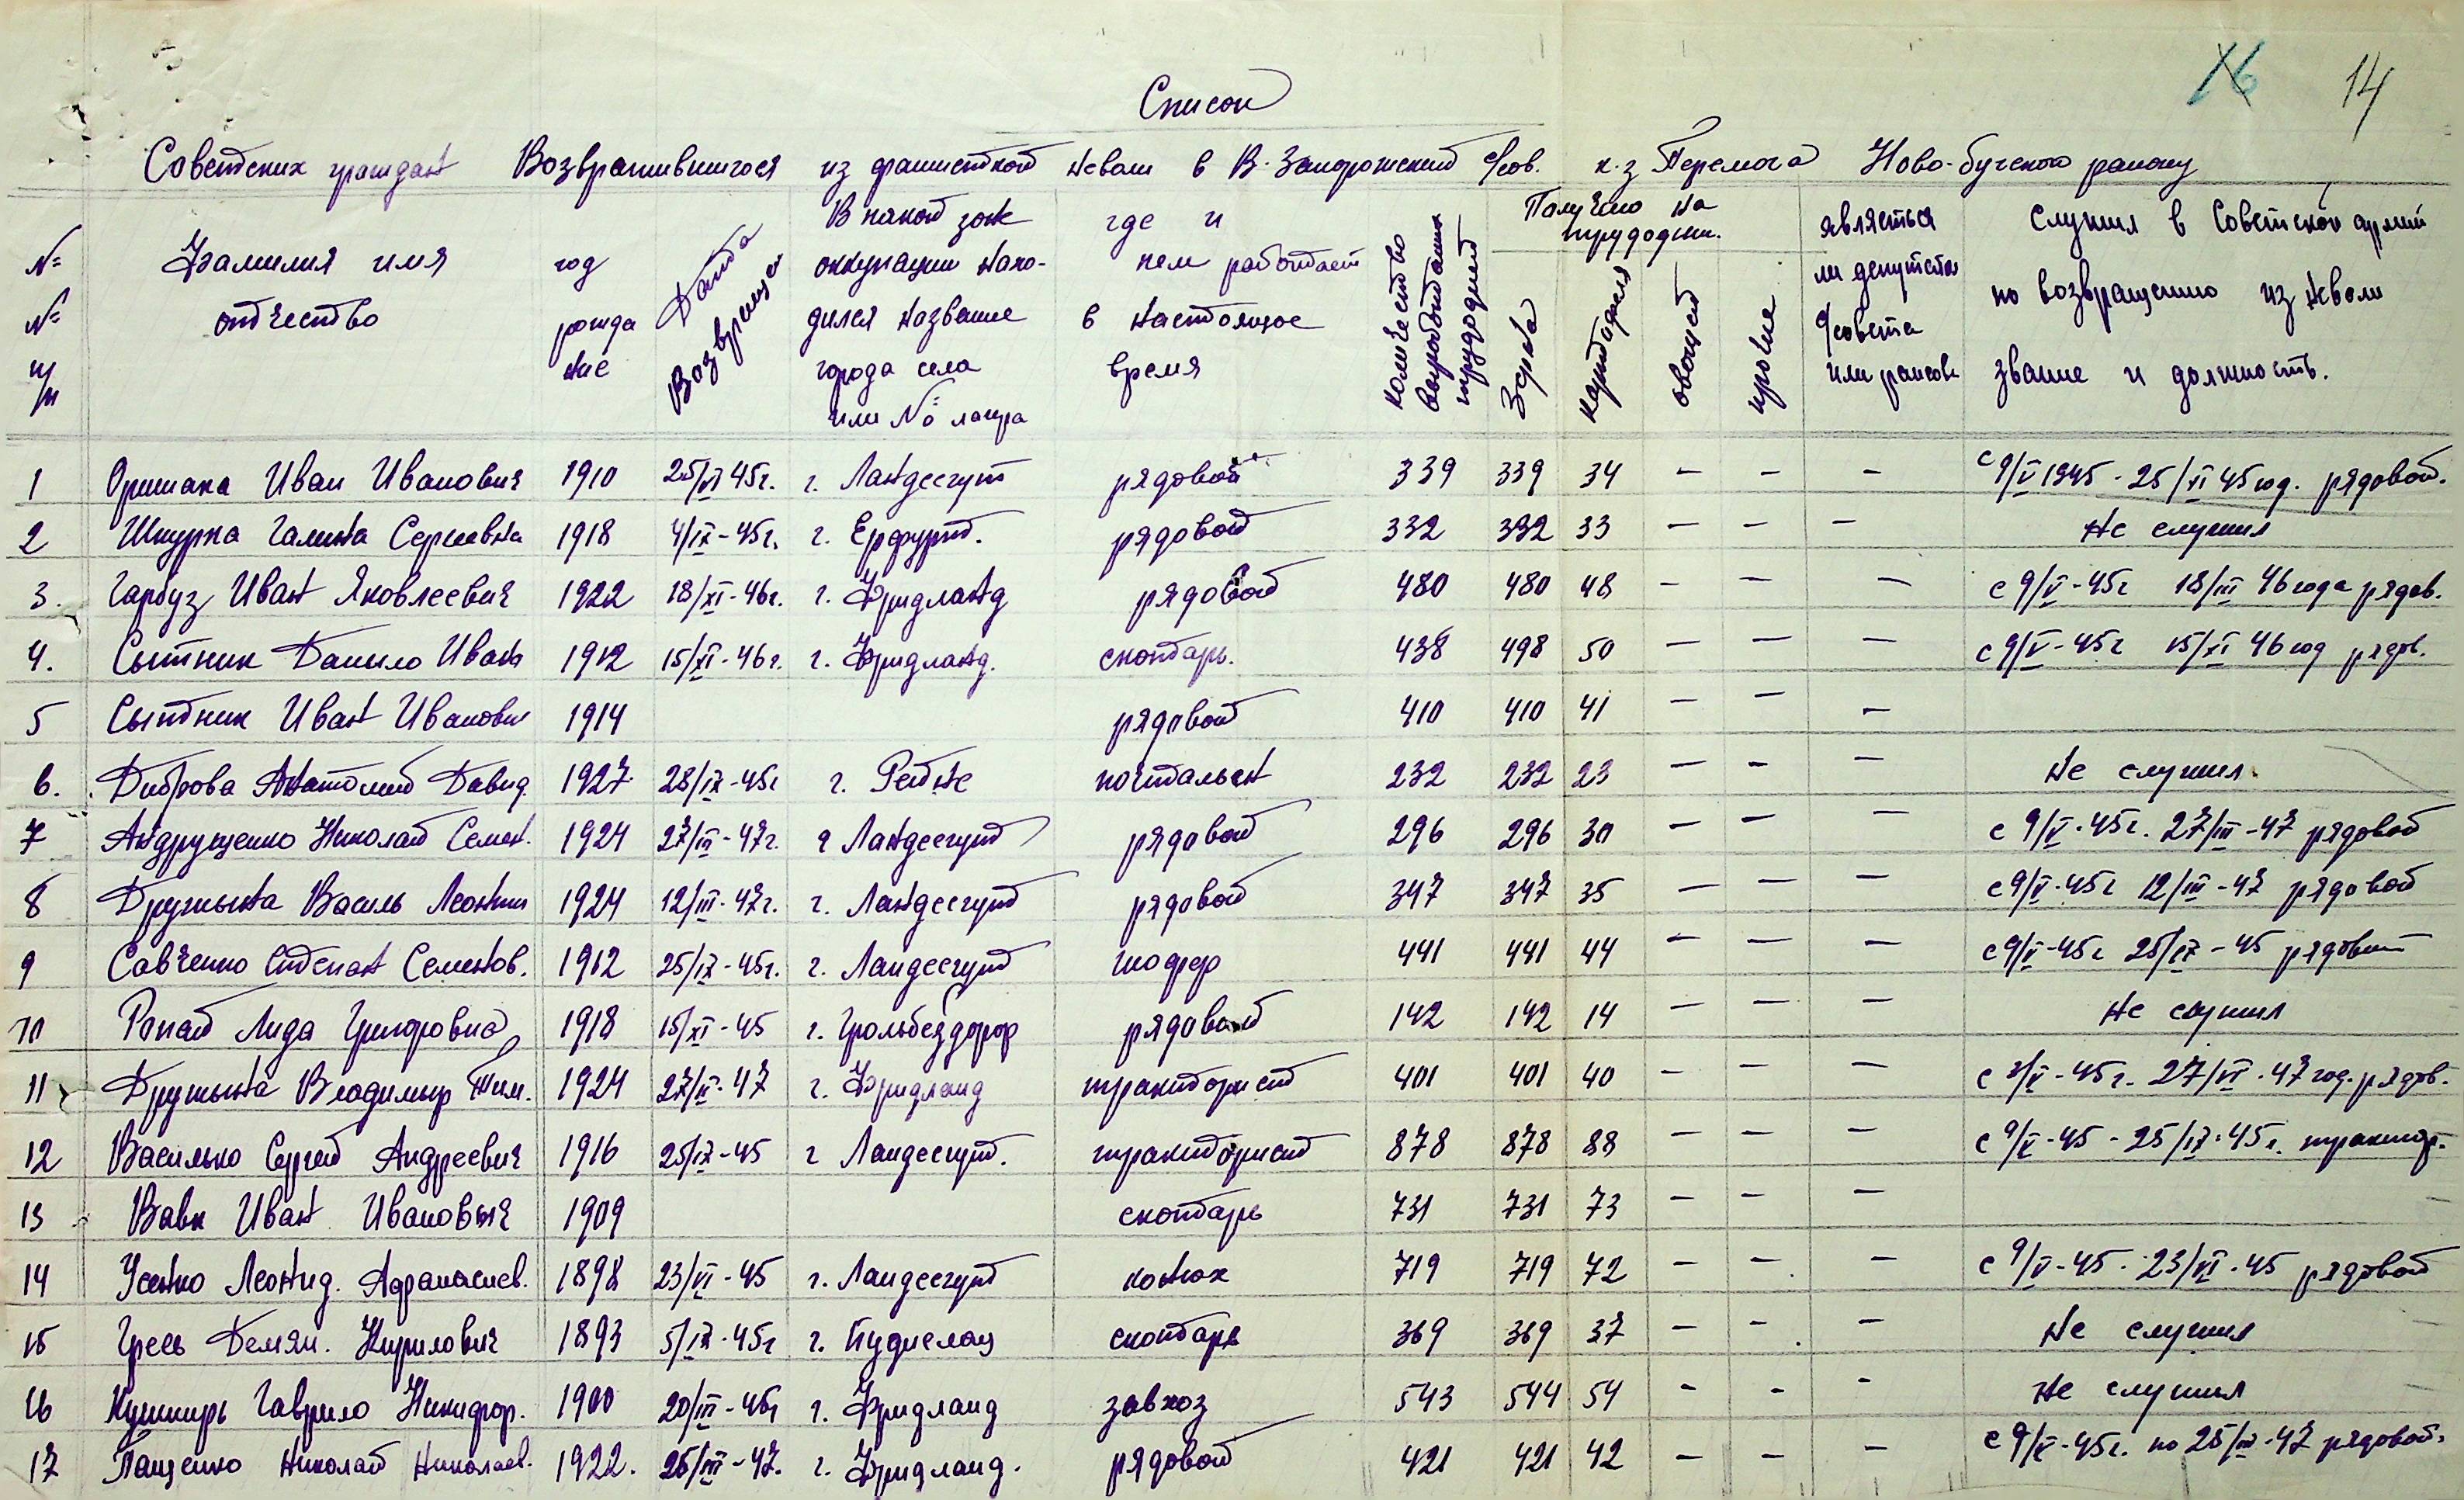 16 14
Список
Советских граждан Возвратившигося из фашисткой неволи в В. Запорожский с/сов. к-з Перемога Ново-бугского району
№ № п/п Фамилия имя отчество год рождение Дата Возвращ. В какой зоне оккупации находился название города села или № лагра где и кем работает в настоящое время количество выработаных трудодней Получено на трудодни. Зерна картофеля овощей прочие являеться ли депутатом с/совета или райсове Служил в Советской армии по возвращению из неволи звание и должность.
1 Иван Иванович 1910 25/VI 45г. г. Ландесгут рядовой 339 339 34 – – – с 9/V 1945 - 25/XI 45 год. рядовой.
2 Шкурка Галина Сергеевна 1918 4/IX-45г. г. Ерфурт. рядовой 332 332 33 – – – Не служил
3. Гарбуз Иван Яковлеевич 1922 18/XI-46г. г. Фридланд рядовой 480 480 48 – – – с 9/V-45г 18/III 46 года рядов.
4. Сытник Даныло Иван 1912 15/XI-46г. г. Фридланд. скотарь. 498 50 – – – с 9/V-45г 15/XI 46 год рядов.
5 Сытник Иван Иванович 1914 рядовой 410 410 41 – – –
6. Диброва Анатолий Давид. 1927 28/IX-45г г. Рейне почтальен 232 232 23 – – – Не служил.
7 Андрущенко Николай Семен. 1924 27/III-47г. г Ландесгут рядовой 296 296 30 – – – с 9/V-45г. 27/III-47 рядовой
8 Дружына Василь Леонтии 1924 12/III-47г. г. Ландесгут рядовой 347 347 35 – – – с 9/V-45г 12/III-47 рядовой
9 Савченко Степан Семенов. 1912 25/IX-45г. г. Ландесгут шофер 441 441 44 – – – с 9/V-45г 25/IX-45 рядовой
10 Лида Григоровна 1918 15/XI-45 г. Грольбездорф рядовой 142 142 14 – – – Не служил
11 Дружына Владимыр Тим. 1924 27/VI-47 г. Фридланд тракторист 401 401 40 – – – с 9/V-45г. 27/VI-47 год. рядов.
12 Василько Сергей Андреевич 1916 25/IX-45 г Ландесгут. тракторист 878 878 88 – – – с 9/V-45-25/IX-45г. трактор.
13 Вавк Иван Ивановыч 1909 скотарь 731 731 73 – – –
14 Усенко Леонид. Афанасиев. 1898 23/VI-45 г. Ландесгут конюх 719 719 72 – – – с 9/V-45-23/VI-45 рядовой
15 Гресь Демян. Кирилович 1893 5/IX-45г г. скотарь 369 369 37 – – – Не служил
16 Кушнирь Гаврило Никифор. 1900 20/III-46г г. Фридланд завхоз 543 544 54 – – – Не служил
17 Пащенко Николай Николаев. 1922. 25/III-47. г. Фридланд. рядовой 421 421 42 – – – с 9/V-45г. по 25/III-47 рядовой.